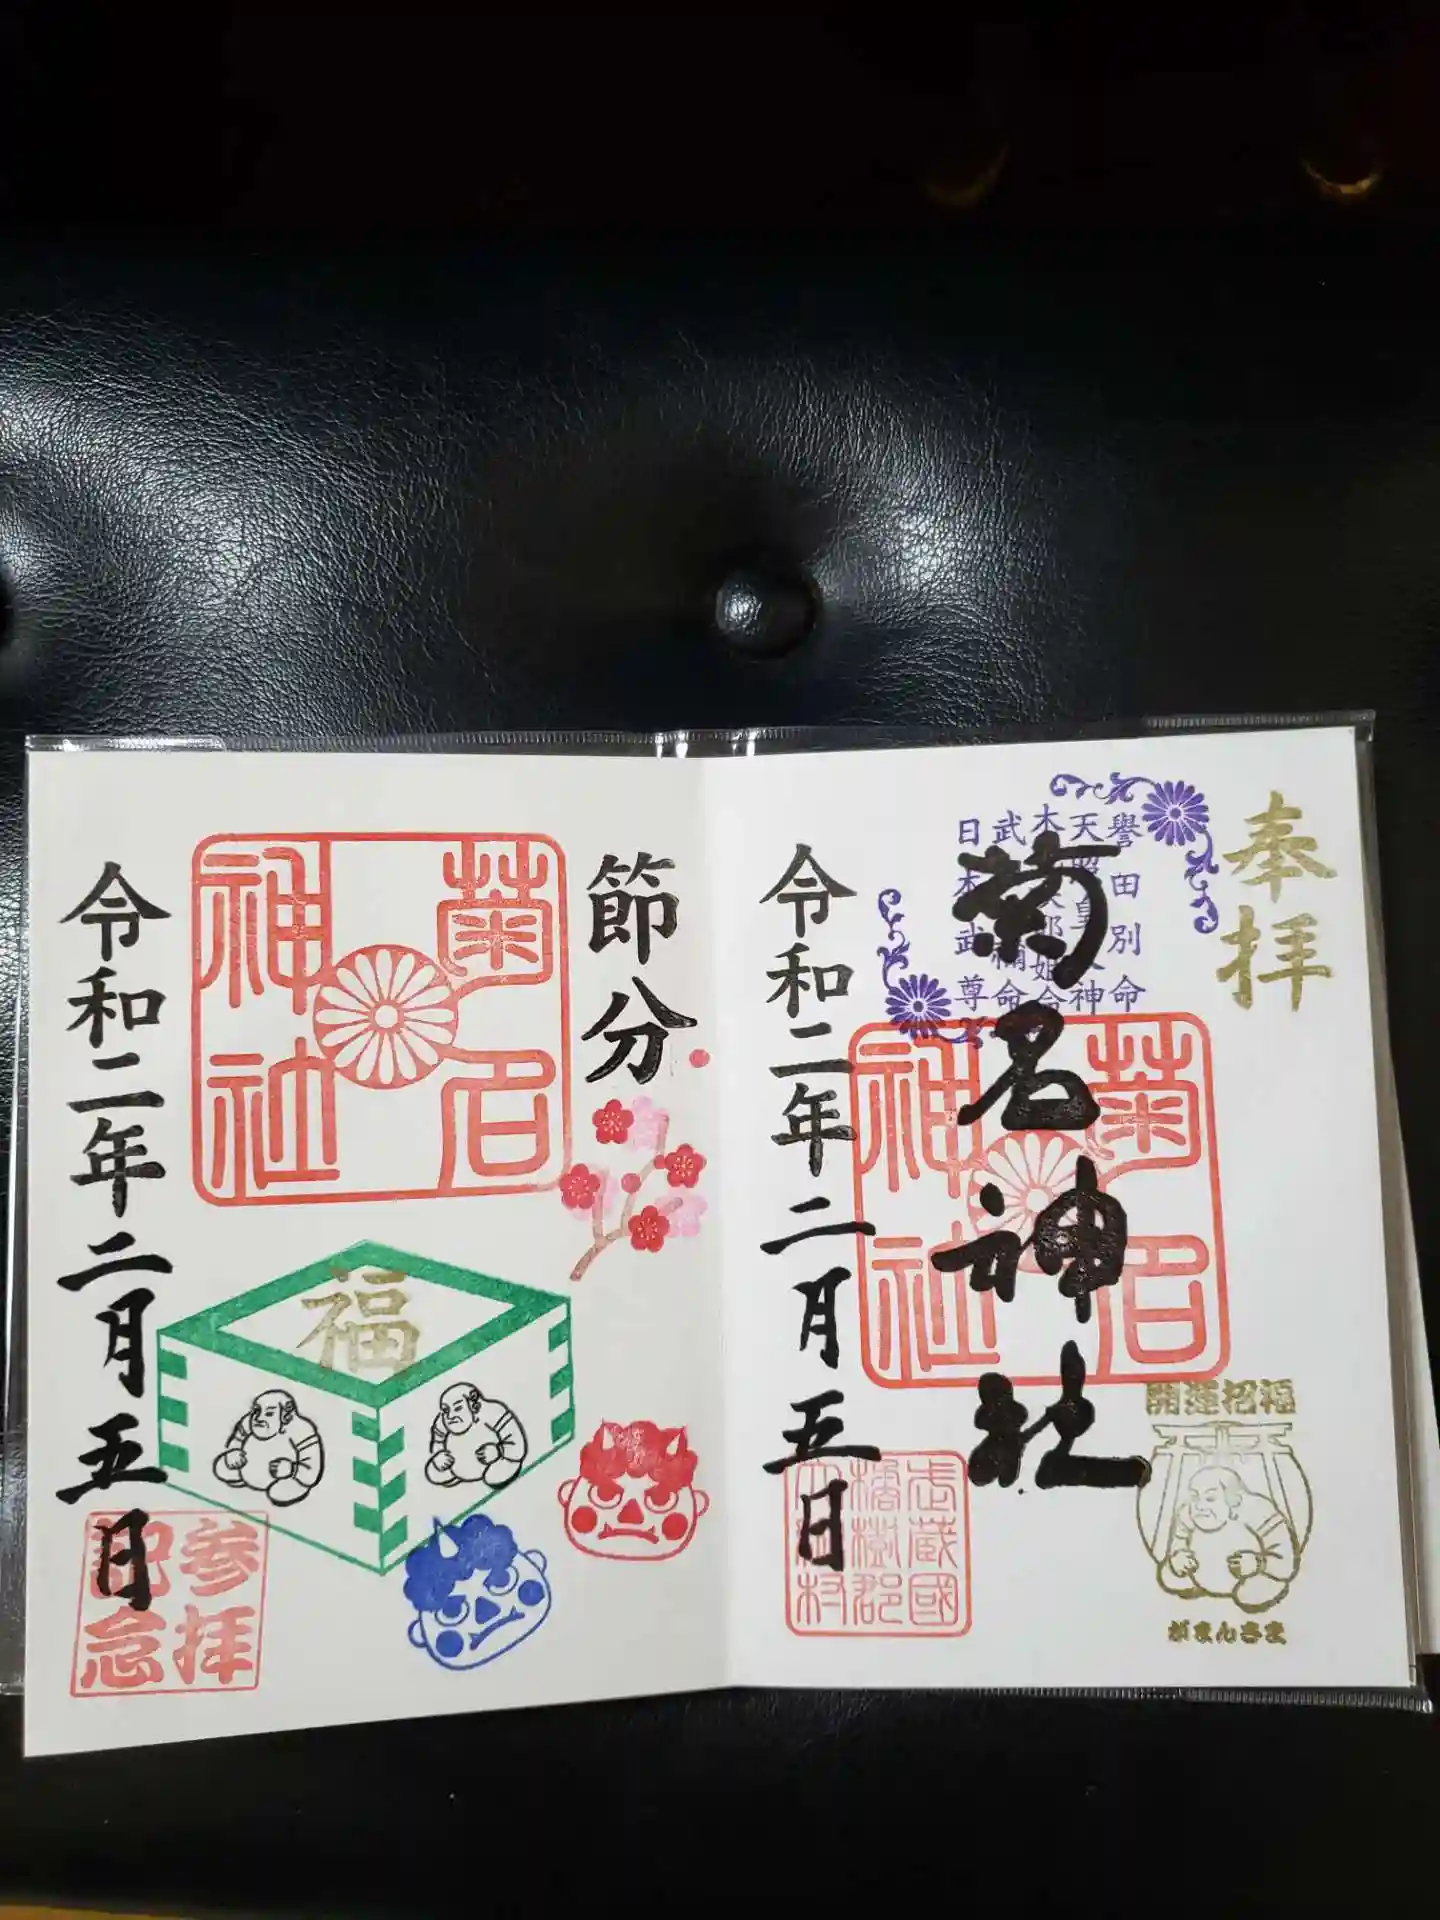 奉拝
譽田別命
天照皇大神
日本武尊
菊名神社
菊名神社
開運招福
がまんさま
武蔵國
橘樹郡
令和二年二月五日
節分
菊名神社
福
令和二年二月五日
参拝
記念